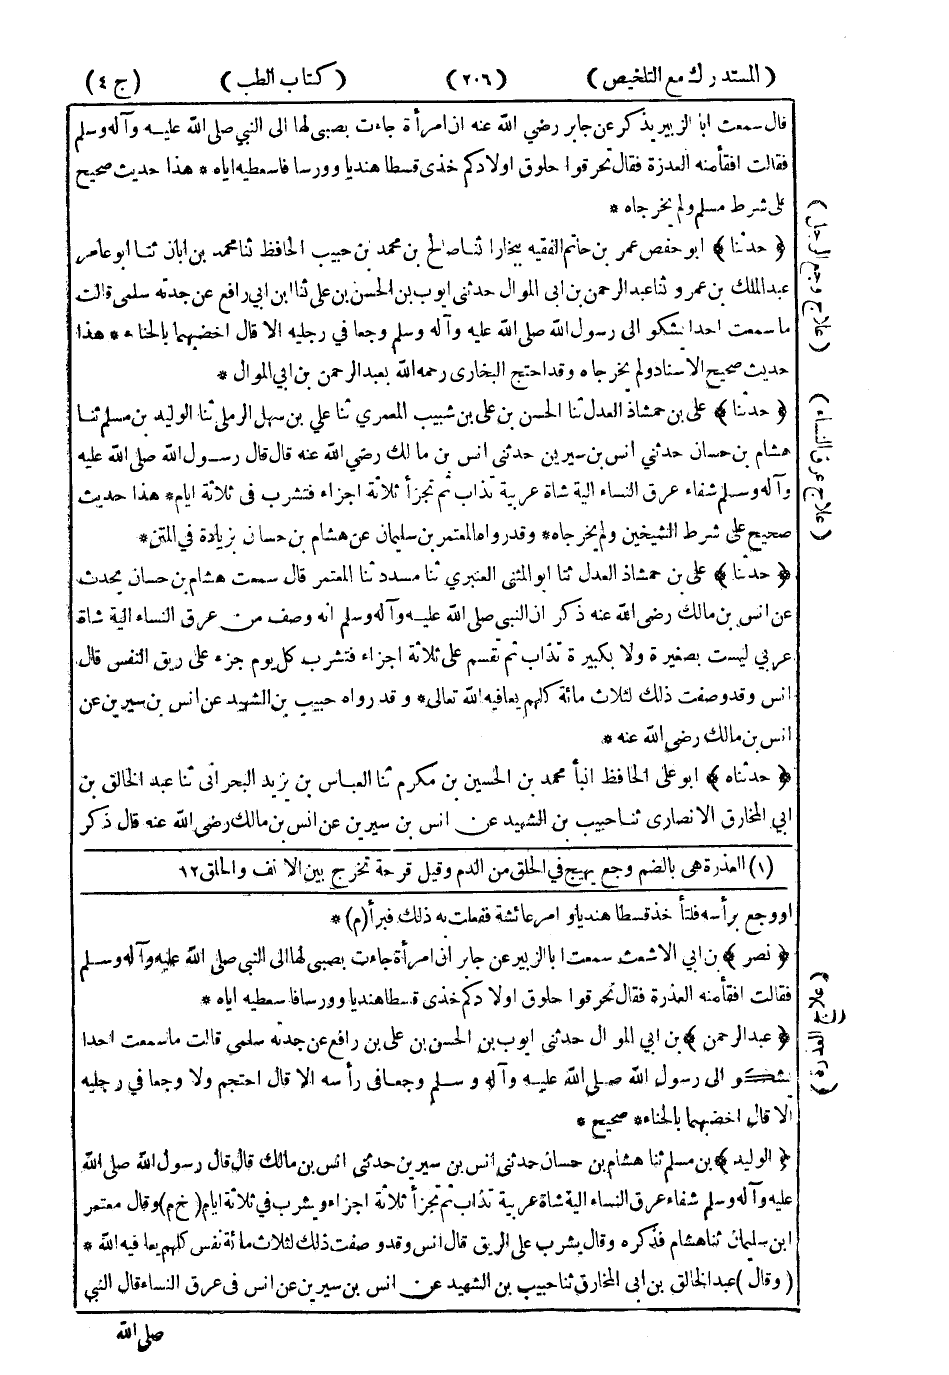 (المستدرك مع التلخيص) (٢٠٦) (كتاب الطب) (ج ٤)
قال سمعت ابا الزبير يذكر عن جابر رضي الله عنه ان امرأة جاءت بصبي لها الى النبي صلى الله عليه وآله وسلم
فقالت افقأ منه العذرة فقال تحرقوا حلوق اولادكم خذى قسطا هنديا وورسا فاسعطيه اياه * هذا حديث صحيح
على شرط مسلم ولم يخرجاه *
﴿ حدثنا ﴾ ابو حفص عمر بن حاتم الفقيه ببخارا ثنا صالح بن محمد بن حبيب الحافظ ثنا محمد بن ابان ثنا ابو عامر
عبد الملك بن عمرو ثنا عبد الرحمن بن ابى الموال حدثنى ايوب بن الحسن بن على ثنا ابن ابي رافع عن جدته سلمى قالت
ما سمعت احدا يشكو الى رسول الله صلى الله عليه وآله وسلم وجعا في رجليه الا قال اخضبهما بالحناء * هذا
حديث صحيح الاسناد ولم يخرجاه وقد احتج البخارى رحمه الله بعبد الرحمن بن ابي الموال *
﴿ حدثنا ﴾ على بن حمشاذ العدل ثنا الحسن بن على بن شبيب المعمري ثنا علي بن سهل الرملى ثنا الوليد بن مسلم ثنا
هشام بن حسان حدثني انس بن سيرين حدثنى انس بن مالك رضي الله عنه قال قال رسول الله صلى الله عليه
وآله وسلم شفاء عرق النساء الية شاة عربية تذاب ثم تجزأ ثلاثة اجزاء فتشرب فى ثلاثة ايام* هذا حديث
صحيح على شرط الشيخين ولم يخرجاه* وقد رواه المعتمر بن سليمان عن هشام بن حسان بزيادة في المتن*
﴿ حدثنا ﴾ على بن حمشاذ العدل ثنا ابو المثنى العنبري ثنا مسدد ثنا المعتمر قال سمعت هشام بن حسان يحدث
عن انس بن مالك رضى الله عنه ذكر ان النبى صلى الله عليه وآله وسلم انه وصف من عرق النساء الية شاة
عربي ليست بصغيرة ولا بكبيرة تذاب ثم تقسم على ثلاثة اجزاء فتشرب كل يوم جزء على ريق النفس قال
انس وقد وصفت ذلك لثلاث مائة كلهم يعافيه الله تعالى* و قد رواه حبيب بن الشهيد عن انس بن سيرين عن
انس بن مالك رضى الله عنه *
﴿ حدثناه ﴾ ابو على الحافظ انبأ محمد بن الحسين بن مكرم ثنا العباس بن يزيد البحرانى ثنا عبد الخالق بن
ابي المخارق الانصارى ثنا حبيب بن الشهيد عن انس بن سيرين عن انس بن مالك رضى الله عنه قال ذكر
(١) العذرة هى بالضم وجع يهيج في الحلق من الدم وقيل قرحة تخرج بين الانف والحلق ١٢
او وجع برأسه فلتأخذ قسطا هنديا و امر عائشة ففعلت به ذلك فبرأ (م) *
﴿ نصر ﴾ بن ابي الاشعث سمعت ابا الزبير عن جابر ان امرأة جاءت بصبي لها الى النبى صلى الله عليه وآله وسلم
فقالت افقأ منه العذرة فقال تحرقوا حلوق اولادكم خذى قسطا هنديا وورسا فاسعطيه اياه *
﴿ عبد الرحمن ﴾ بن ابي الموال حدثنى ايوب بن الحسن بن على بن رافع عن جدته سلمى قالت ما سمعت احدا
يشكو الى رسول الله صلى الله عليه وآله وسلم وجعا فى رأسه الا قال احتجم ولا وجعا في رجليه
الا قال اخضبهما بالحناء* صحيح *
﴿ الوليد ﴾ بن مسلم ثنا هشام بن حسان حدثنى انس بن سيرين حدثنى انس بن مالك قال قال رسول الله صلى الله
عليه وآله وسلم شفاء عرق النساء الية شاة عربية تذاب ثم تجزأ ثلاثة اجزاء ويشرب في ثلاثة ايام (خ م) وقال معتمر
ابن سليمان ثنا هشام فذكره وقال يشرب على الريق قال انس وقد وصفت ذلك لثلاث مائة نفس كلهم يعافيه الله *
(وقال) عبد الخالق بن ابى المخارق ثنا حبيب بن الشهيد عن انس بن سيرين عن انس فى عرق النساء قال النبي
صلى الله
(علاج وجع الرجل)
(علاج عرق النساء)